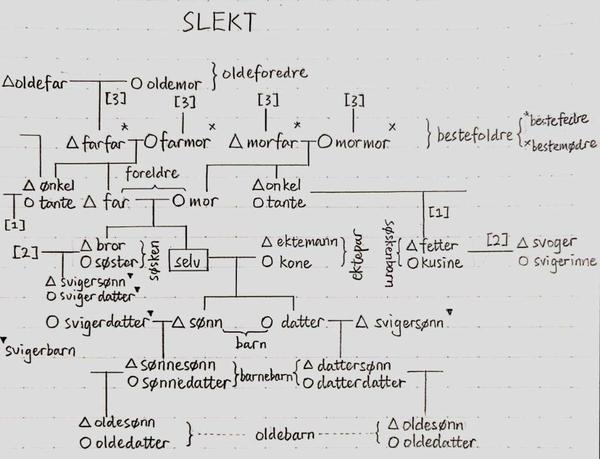 SLEKT
△oldefar ○ oldemor } oldeforedre
[3] [3] [3] [3]
△ farfar* ○ farmor× △ morfar* ○ mormor× } bestefoldre { *bestefedre
×bestemødre
foreldre
△ onkel △ far ○ mor △ onkel
○ tante ○ tante
[1] [1]
[2] △ bror } søsken selv △ ektemann } ektepar søskenbarn { △ fetter [2] △ svoger
○ søster ○ kone ○ kusine ○ svigerinne
△ svigersønn▼
○ svigerdatter▼
○ svigerdatter▼ △ sønn ○ datter △ svigersønn▼
barn
▼svigerbarn
△ sønnesønn } barnebarn { △ dattersønn
○ sønnedatter ○ datterdatter
△ oldesønn } oldebarn { △ oldesønn
○ oldedatter ○ oldedatter